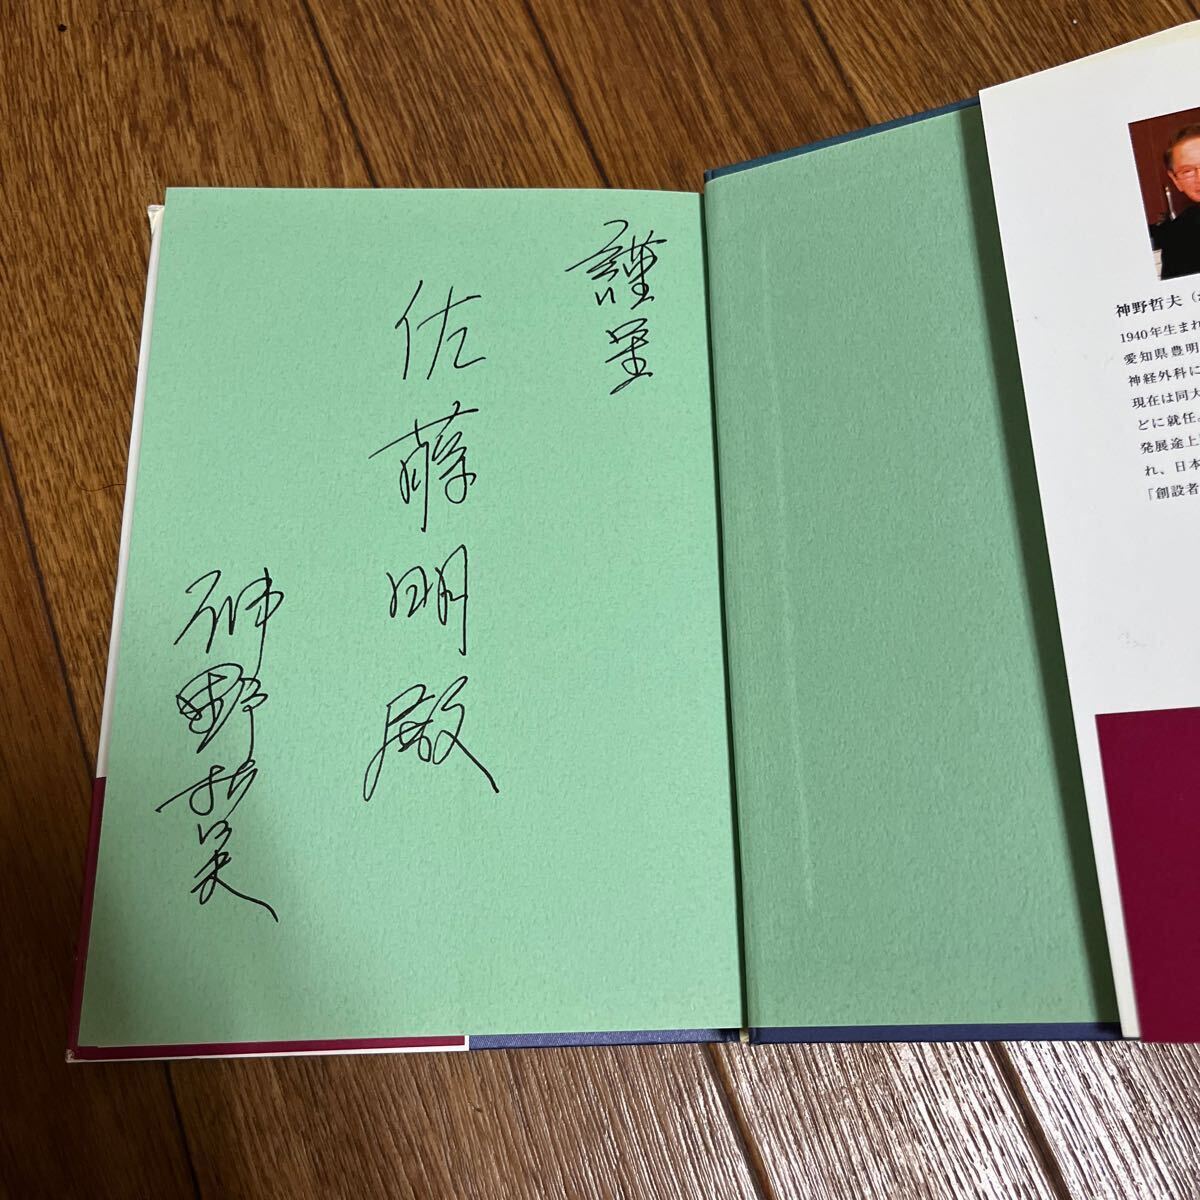 謹呈
佐藤明殿
神野哲夫
神野哲夫（
1940年生まれ
愛知県豊明
神経外科に
現在は同大
どに就任。
発展途上
れ、日本
「創設者